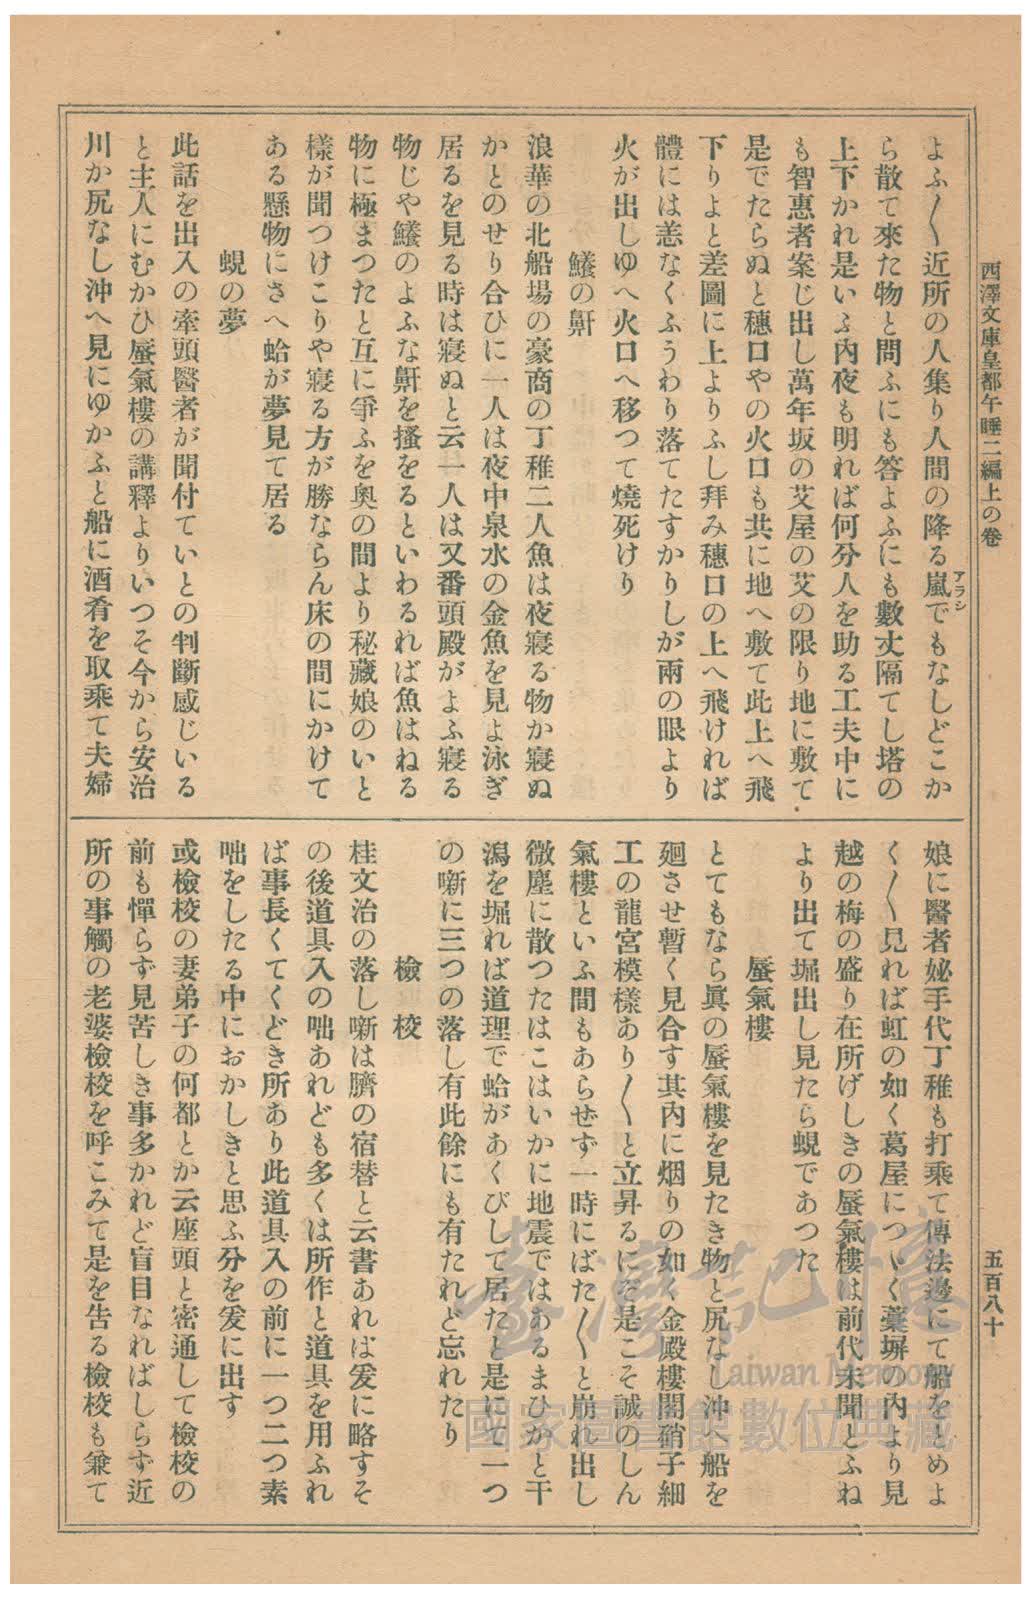 西澤文庫皇都午睡二編上の卷
五百八十
よふ〳〵近所の人集り人間の降る嵐でもなしどこか
アラシ
ら散て來た物と問ふにも答よふにも數丈隔てし塔の
上下かれ是いふ內夜も明れば何分人を助る工夫中に
も智惠者案じ出し萬年坂の艾屋の艾の限り地に敷て
是でたらぬと穗口やの火口も共に地へ敷て此上へ飛
下りよと差圖に上よりふし拜み穗口の上へ飛ければ
體には恙なくふうわり落てたすかりしが兩の眼より
火が出しゆへ火口へ移つて燒死けり
鱶の鼾
浪華の北船場の豪商の丁稚二人魚は夜寢る物か寢ぬ
かとのせり合ひに一人は夜中泉水の金魚を見よ泳ぎ
居るを見る時は寢ぬと云一人は又番頭殿がよふ寢る
物じや鱶のよふな鼾を搔をるといわるれば魚はねる
物に極まつたと互に爭ふを奧の間より秘藏娘のいと
樣が聞つけこりや寢る方が勝ならん床の間にかけて
ある懸物にさへ蛤が夢見て居る
蜆の夢
此話を出入の牽頭醫者が聞付ていとの判斷感じいる
と主人にむかひ蜃氣樓の講釋よりいつそ今から安治
川か尻なし沖へ見にゆかふと船に酒肴を取乘て夫婦
娘に醫者妼手代丁稚も打乘て傳法邊にて船をとめよ
く〳〵見れば虹の如く葛屋につゞく藁塀の內より見
越の梅の盛り在所げしきの蜃氣樓は前代未聞とふね
より出て堀出し見たら蜆であつた
蜃氣樓
とてもなら眞の蜃氣樓を見たき物と尻なし沖へ船を
廻させ暫く見合す其內に烟りの如く金殿樓閣硝子細
工の龍宮模樣あり〳〵と立昇るにぞ是こそ誠のしん
氣樓といふ間もあらせず一時にばた〳〵と崩れ出し
微塵に散つたはこはいかに地震ではあるまひかと干
瀉を堀れば道理で蛤があくびして居たと是にて一つ
の噺に三つの落し有此餘にも有たれど忘れたり
檢校
桂文治の落し噺は臍の宿替と云書あれば爰に略すそ
の後道具入の咄あれども多くは所作と道具を用ふれ
ば事長くてくどき所あり此道具入の前に一つ二つ素
咄をしたる中におかしきと思ふ分を爰に出す
或檢校の妻弟子の何都とか云座頭と密通して檢校の
前も憚らず見苦しき事多かれど盲目なればしらず近
所の事觸の老婆檢校を呼こみて是を吿る檢校も兼て